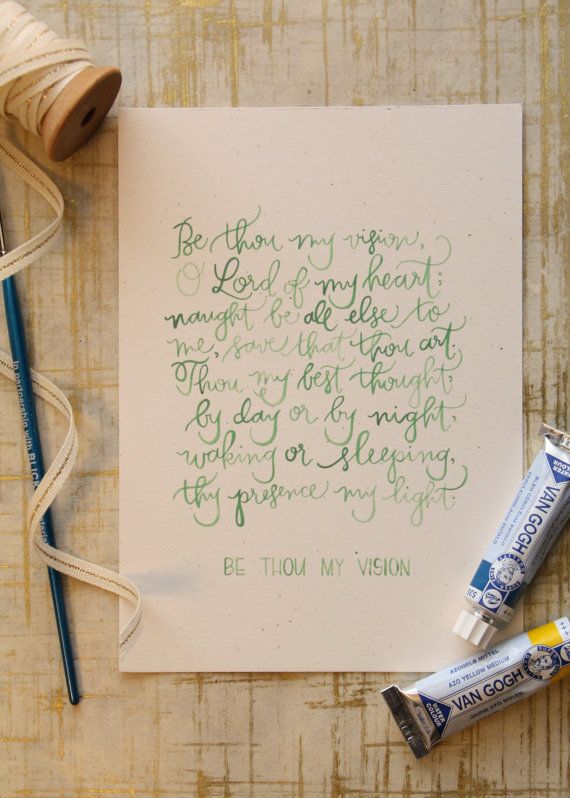 Be thou my vision,
O Lord of my heart;
naught be all else to
me, save that thou art.
Thou my best thought,
by day or by night,
waking or sleeping,
thy presence my light.
BE THOU MY VISION
In partnership with BLICK
WATER COLOUR
VAN GOGH
535
AZOGELB MITTEL
AZO YELLOW MEDIUM
VAN GOGH
JAUNE AZO MOYEN
WATER COLOUR